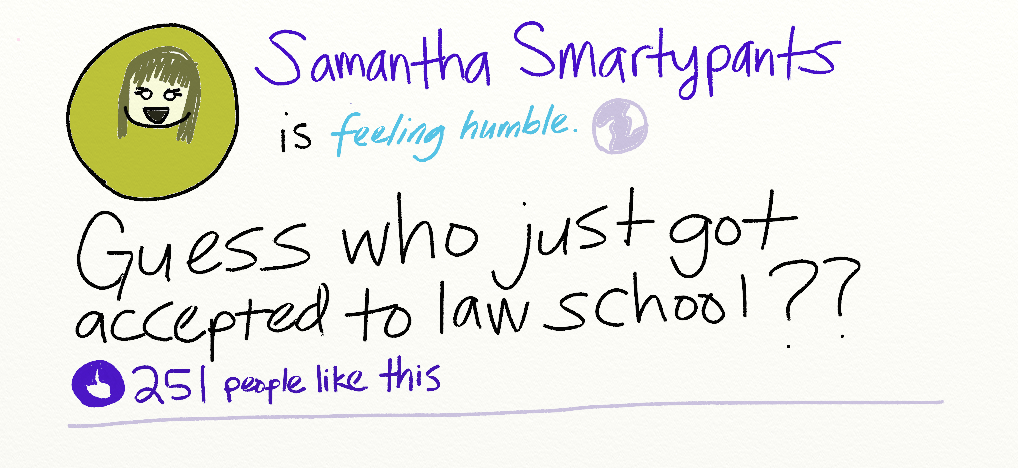 Samantha Smartypants
is feeling humble.
Guess who just got
accepted to law school??
251 people like this